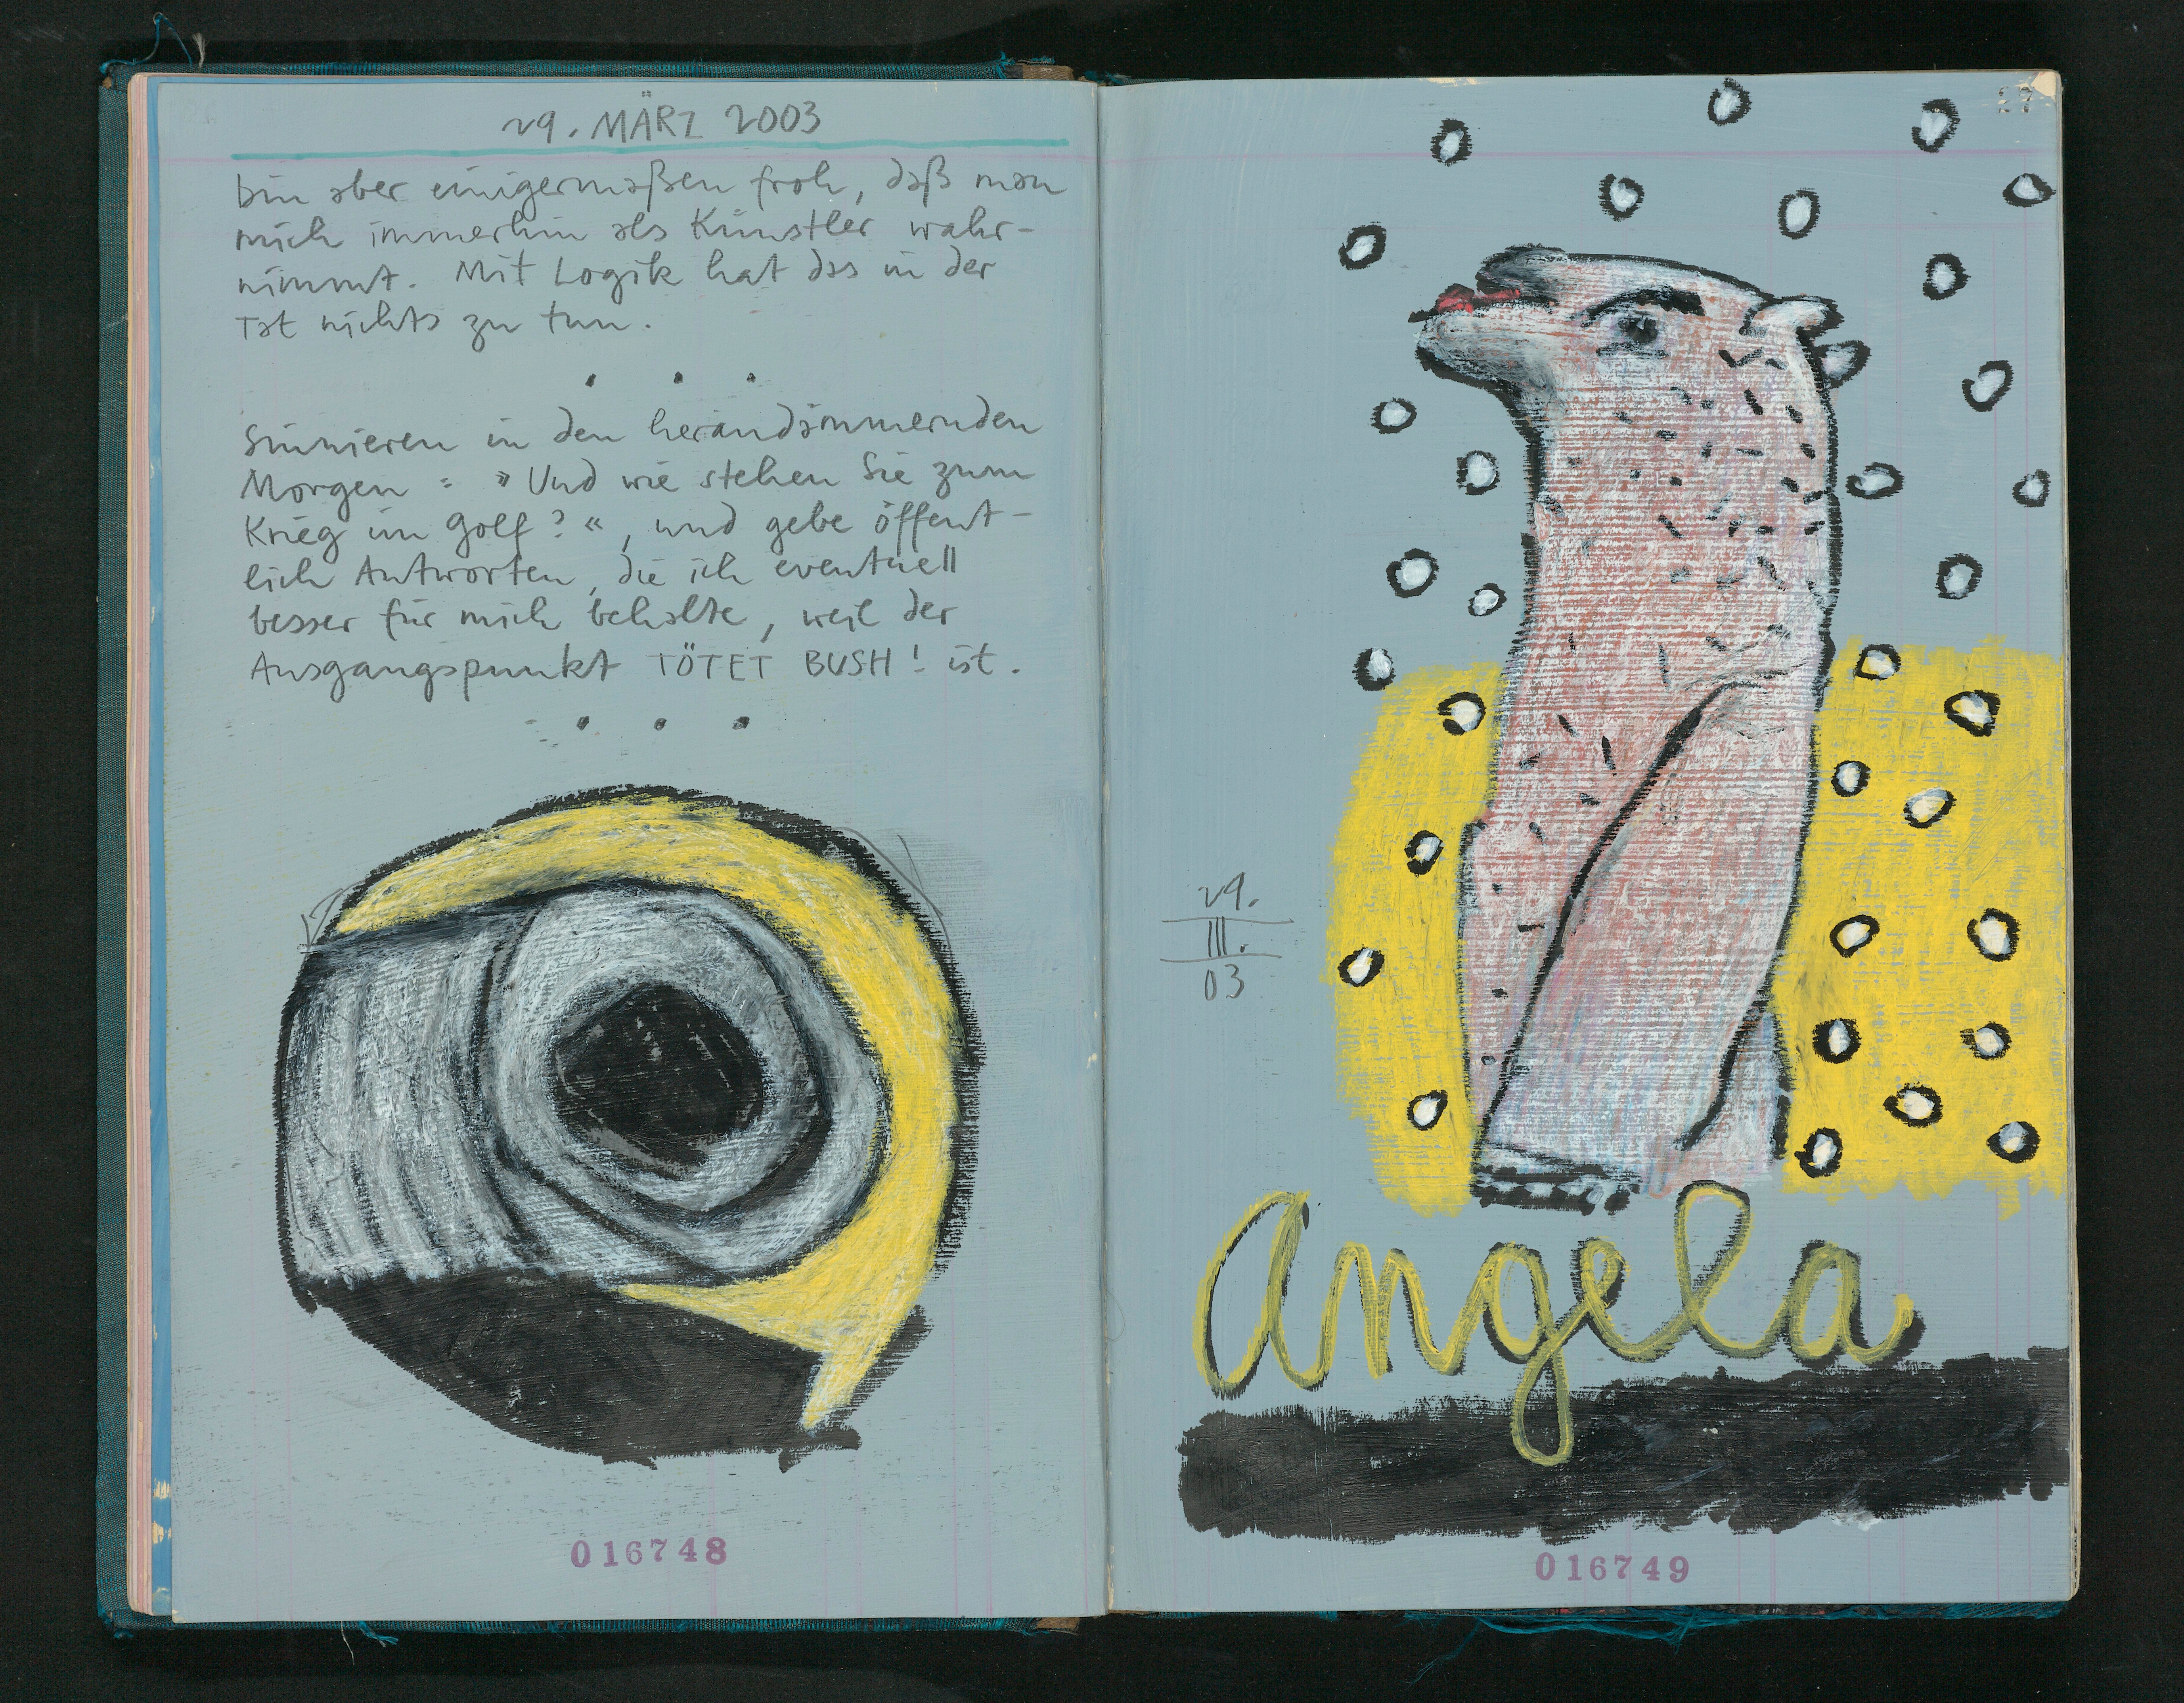 29. MÄRZ 2003
bin aber einigermaßen froh, daß man
mich immerhin als Künstler wahr-
nimmt. Mit Logik hat das in der
Tat nichts zu tun.
. . .
Sinnieren in den herandämmernden
Morgen: »Und wie stehen Sie zum
Krieg im Golf?«, und gebe öffent-
lich Antworten, die ich eventuell
besser für mich behalte, weil der
Ausgangspunkt TÖTET BUSH! ist.
. . .
016748
27
29.
III.
03
Angela
016749